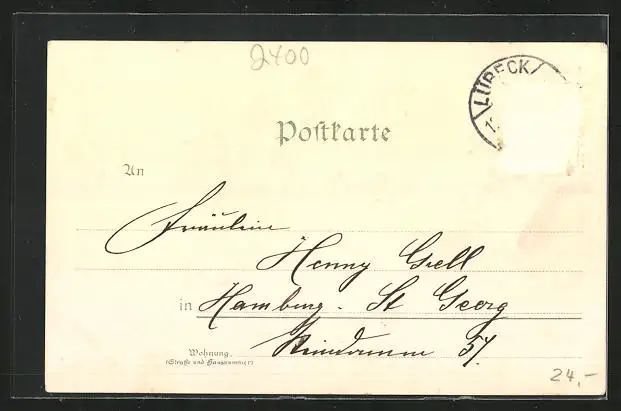 2400
LÜBECK
Postkarte
An
Fräulein
Henny Grell
in Hamburg. St Georg
Wohnung. Steindamm 57
(Straße und Hausnummer)
24,-